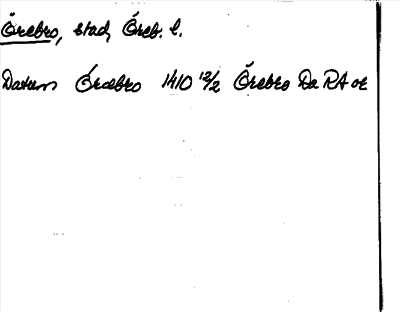 Örebro, stad, Öreb. l.
Datum Örebro 1410 12/2 Örebro Da RA or